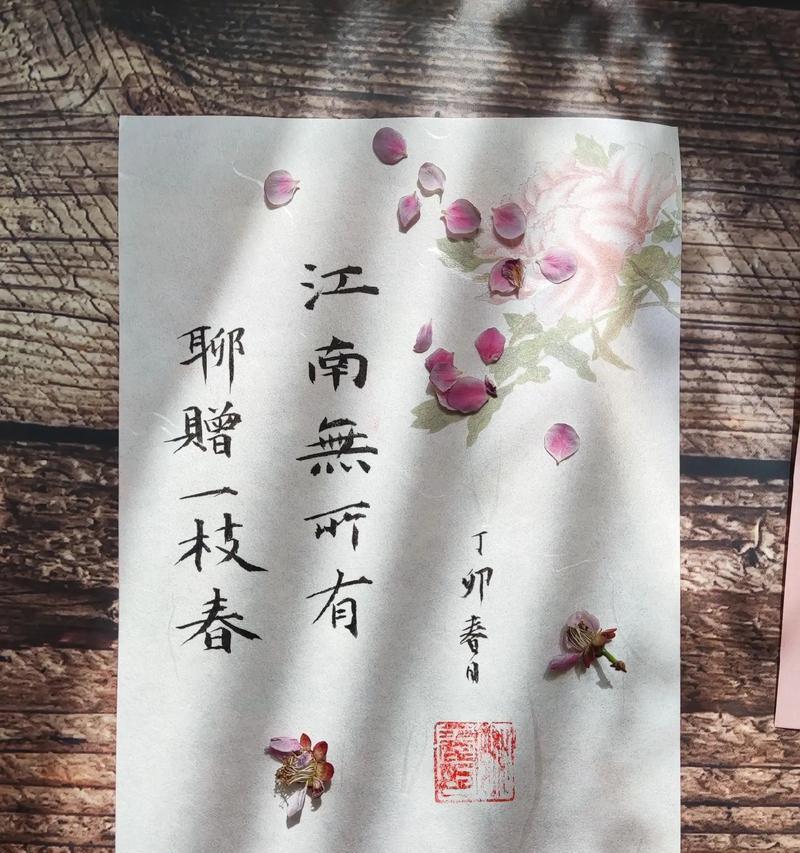 江南無所有
聊贈一枝春
丁卯春日